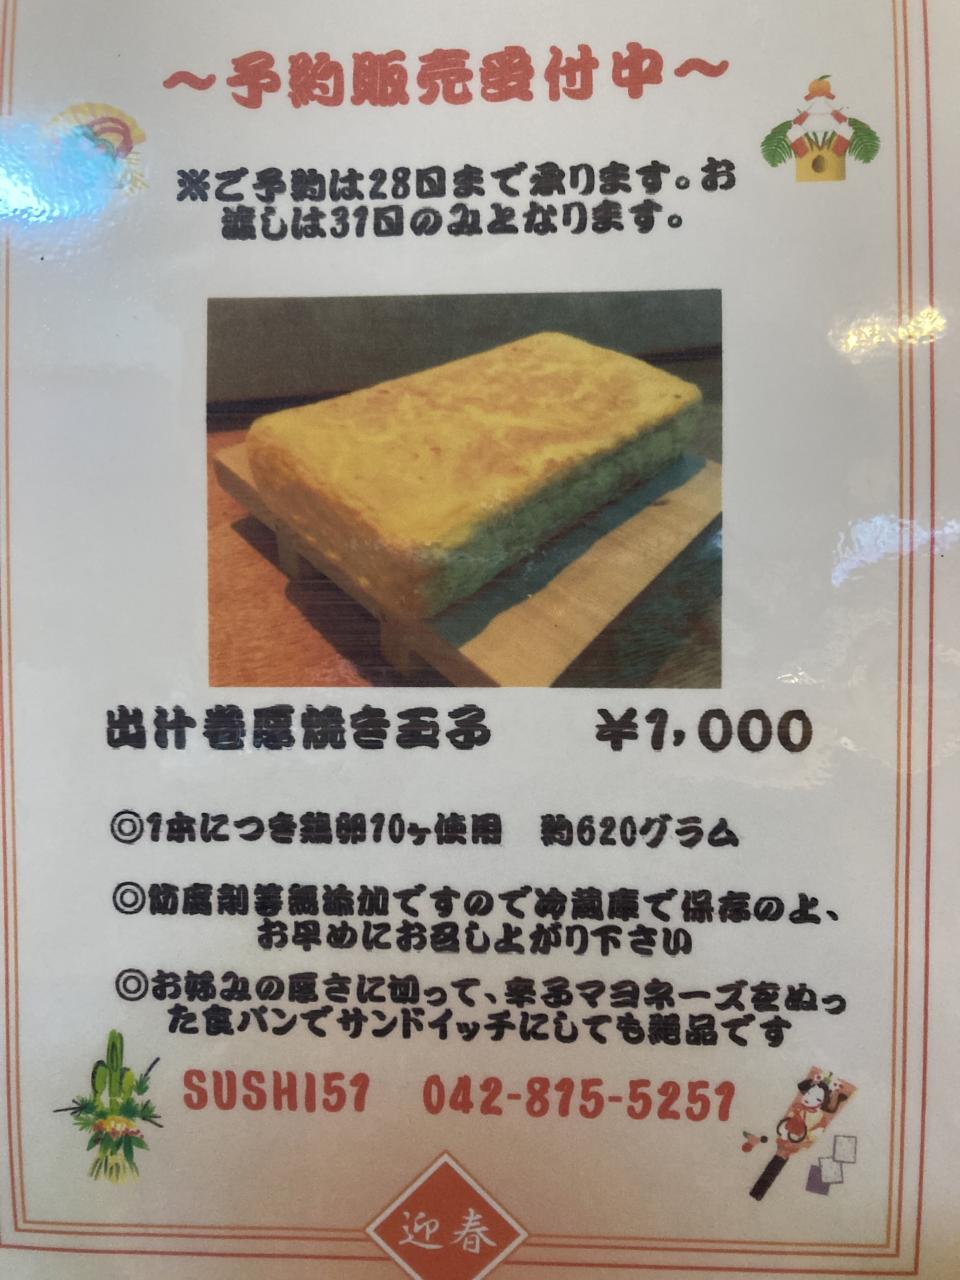 ～予約販売受付中～
※ご予約は28日まで承ります。お
渡しは31日のみとなります。
出汁巻厚焼き玉子 ¥1,000
◎1本につき鶏卵10ヶ使用 約620グラム
◎防腐剤等無添加ですので冷蔵庫で保存の上、
お早めにお召し上がり下さい
◎お好みの厚さに切って、辛子マヨネーズをぬっ
た食パンでサンドイッチにしても絶品です
SUSHI51 042-815-5251
迎春